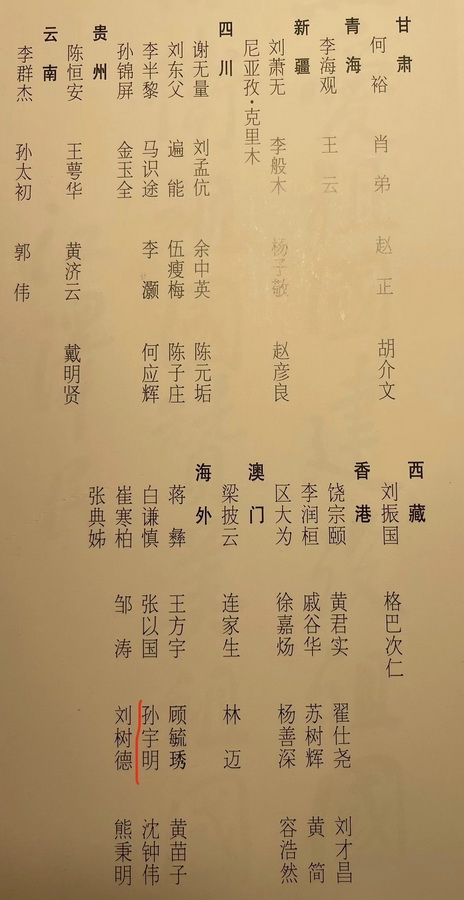 甘肃
何裕 肖弟 赵正 胡介文
青海
李海观 王云
新疆
刘萧无 李般木 杨子敬 赵彦良
尼亚孜·克里木
四川
谢无量 刘孟伉 余中英 陈元垢
刘东父 遍能 伍瘦梅 陈子庄
李半黎 马识途 李灏 何应辉
孙锦屏 金玉全
贵州
陈恒安 王萼华 黄济云 戴明贤
云南
李群杰 孙太初 郭伟
西藏
刘振国 格巴次仁
香港
饶宗颐 黄君实 翟仕尧 刘才昌
李润桓 戚谷华 苏树辉 黄简
区大为 徐嘉炀 杨善深 容浩然
澳门
梁披云 连家生 林迈
海外
蒋彝 王方宇 顾毓琇 黄苗子
白谦慎 张以国 孙宇明 沈钟伟
崔寒柏 邹涛 刘树德 熊秉明
张典姊